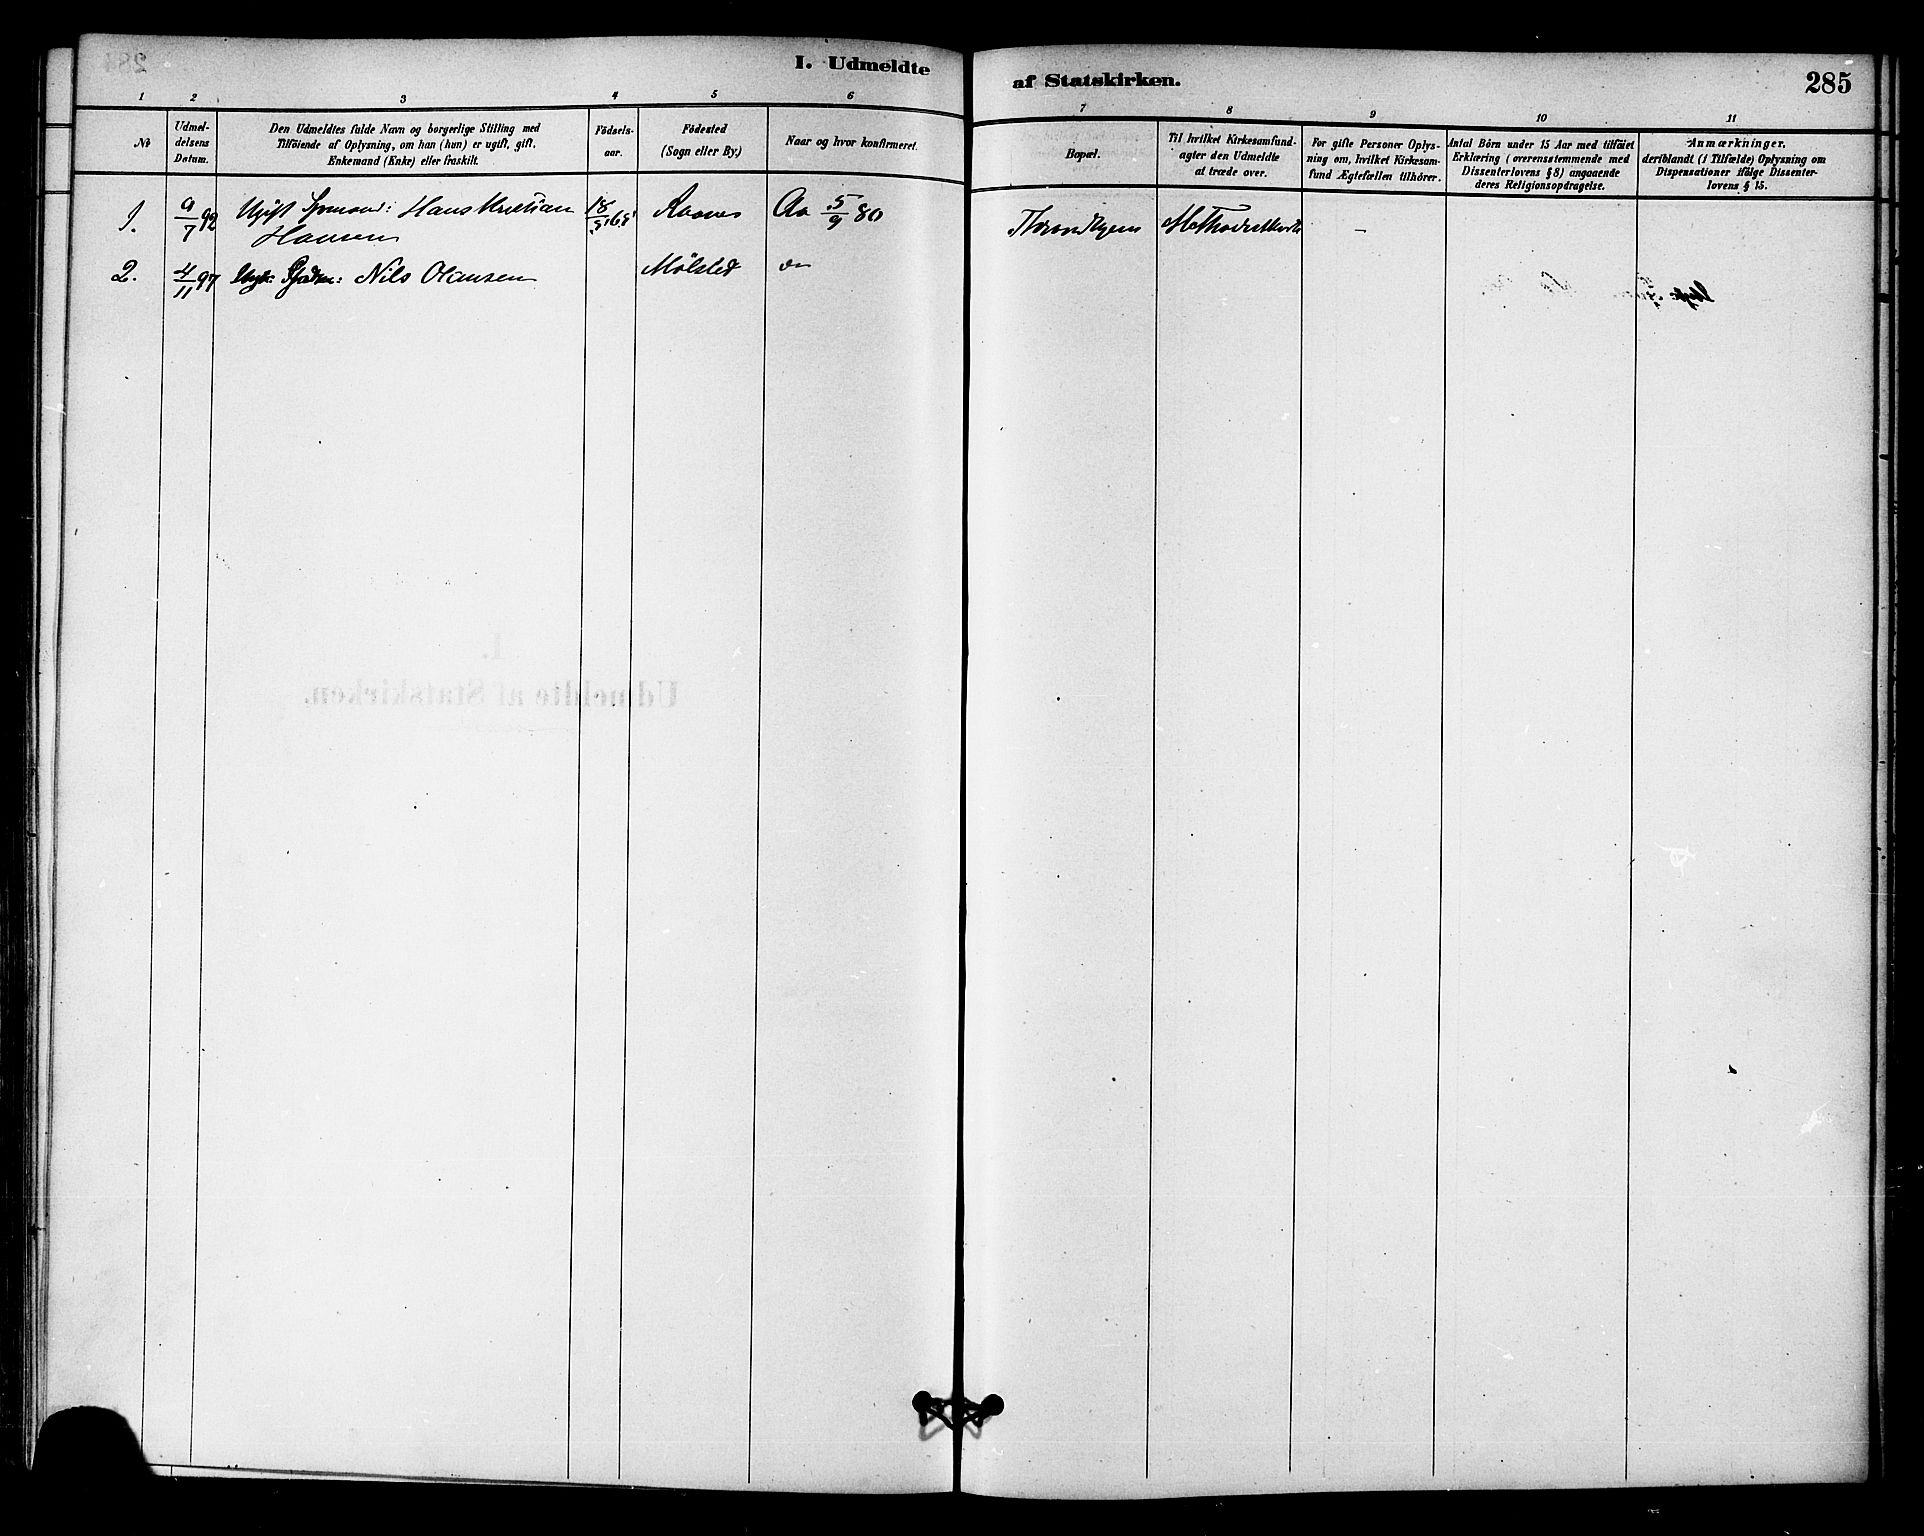 I. Udmeldte
af Statskirken.
285
1 2 3 4 5 6
7 8 9 10 11
No
Udmel-
delsens
Datum.
Den Udmeldtes fulde Navn og borgerlige Stilling med
Tilföiende af Oplysning, om han (hun) er ugift, gift,
Enkemand (Enke) eller fraskilt.
Födsels-
aar.
Födested
(Sogn eller By.)
Naar og hvor konfirmeret.
Bopæl.
Til hvilket Kirkesamfund-
agter den Udmeldte
at træde over.
For gifte Personer Oplys-
ning om, hvilket Kirkesam-
fund Ægtefællen tilhörer.
Antal Börn under 15 Aar med tilföiet
Erklæring (overensstemmende med
Dissenterlovens § 8) angaaende
deres Religionsopdragelse.
Anmærkninger,
deriblandt (i Tilfælde) Oplysning om
Dispensationer ifölge Dissenter-
lovens § 15.
1. 9/7 92 Ugift Hans Kristian 18/5 65 Aa 5/9 80 Methodistkirke -
Hansen
2. 4/11 97 Nils Olausen Mölsted